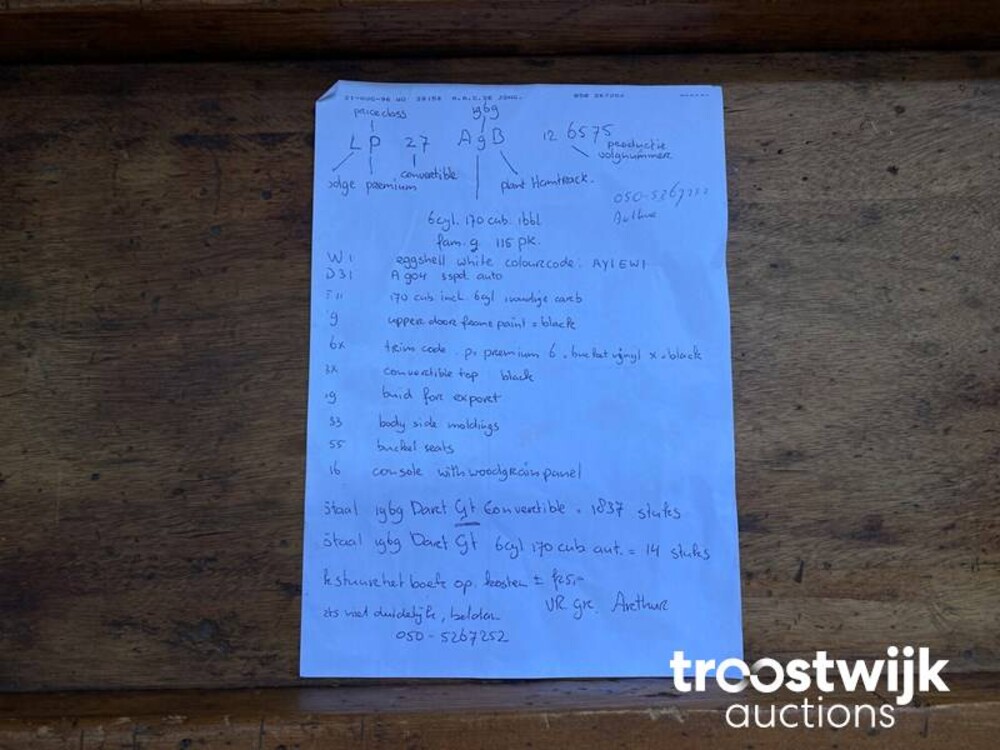 27-AUG-96 WO
priceclass 1969
LP 27 A9B 126575
productie
volgnummer
convertible
odge premium plant Hamtrack.
050-5267252
6cyl. 170 cub. 1bbl.
fam. 9 115 pk.
W1 eggshell white colourcode. AY1EW1
D31 A904 3spd. auto
170 cub. inch. 6cyl carb
9 upper door frame paint = black
6x trim code. p = premium 6 = bucket vijnyl x = black
3x convertible top black
9 buid for export
33 body side moldings
55 bucket seats
16 console with woodgrain panel
taal 1969 Dart Gt Convertible = 1837 stuks
taal 1969 Dart Gt 6cyl 170 cub. aut. = 14 stuks
k stuur het boek op. kosten ± f25,-
ets niet duidelijk, bellen. VR. gr. Arthur
050-5267252
troostwijk
auctions